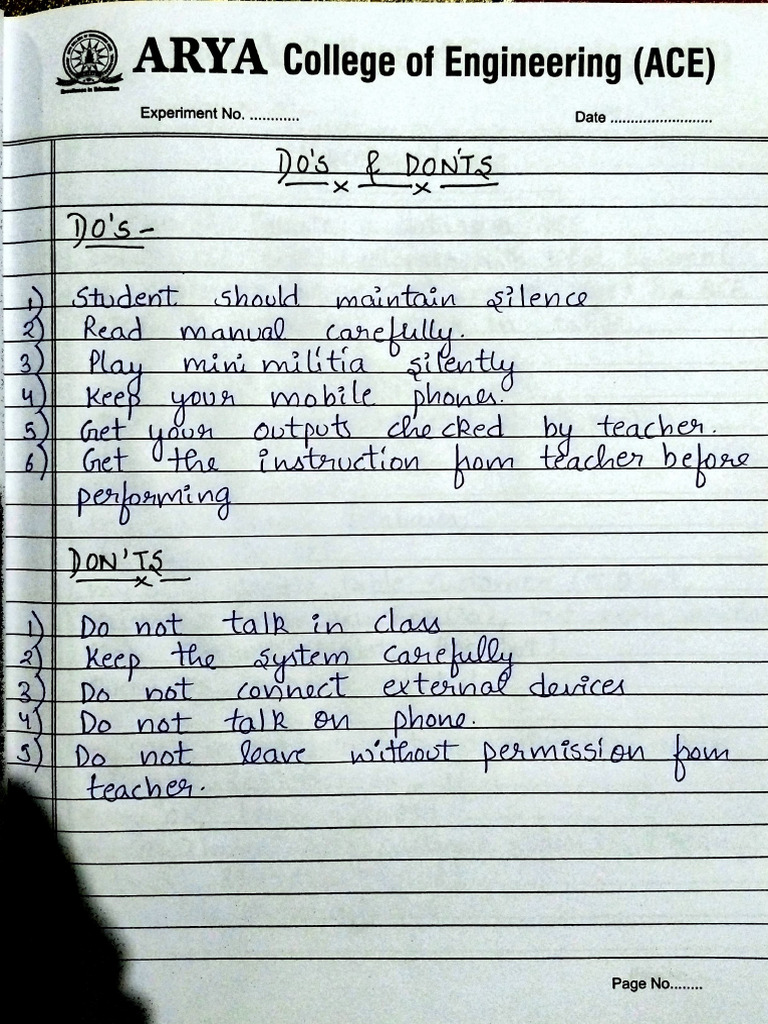 ARYA College of Engineering (ACE)
Excellence in Education
Experiment No. ............
Date .........................
DO'S & DON'TS
DO'S -
1) Student should maintain silence
2) Read manual carefully.
3) Play mini militia silently
4) Keep your mobile phones.
5) Get your outputs checked by teacher.
6) Get the instruction from teacher before
performing
DON'TS
1) Do not talk in class
2) Keep the system carefully
3) Do not connect external devices
4) Do not talk on phone.
5) Do not leave without permission from
teacher.
Page No........